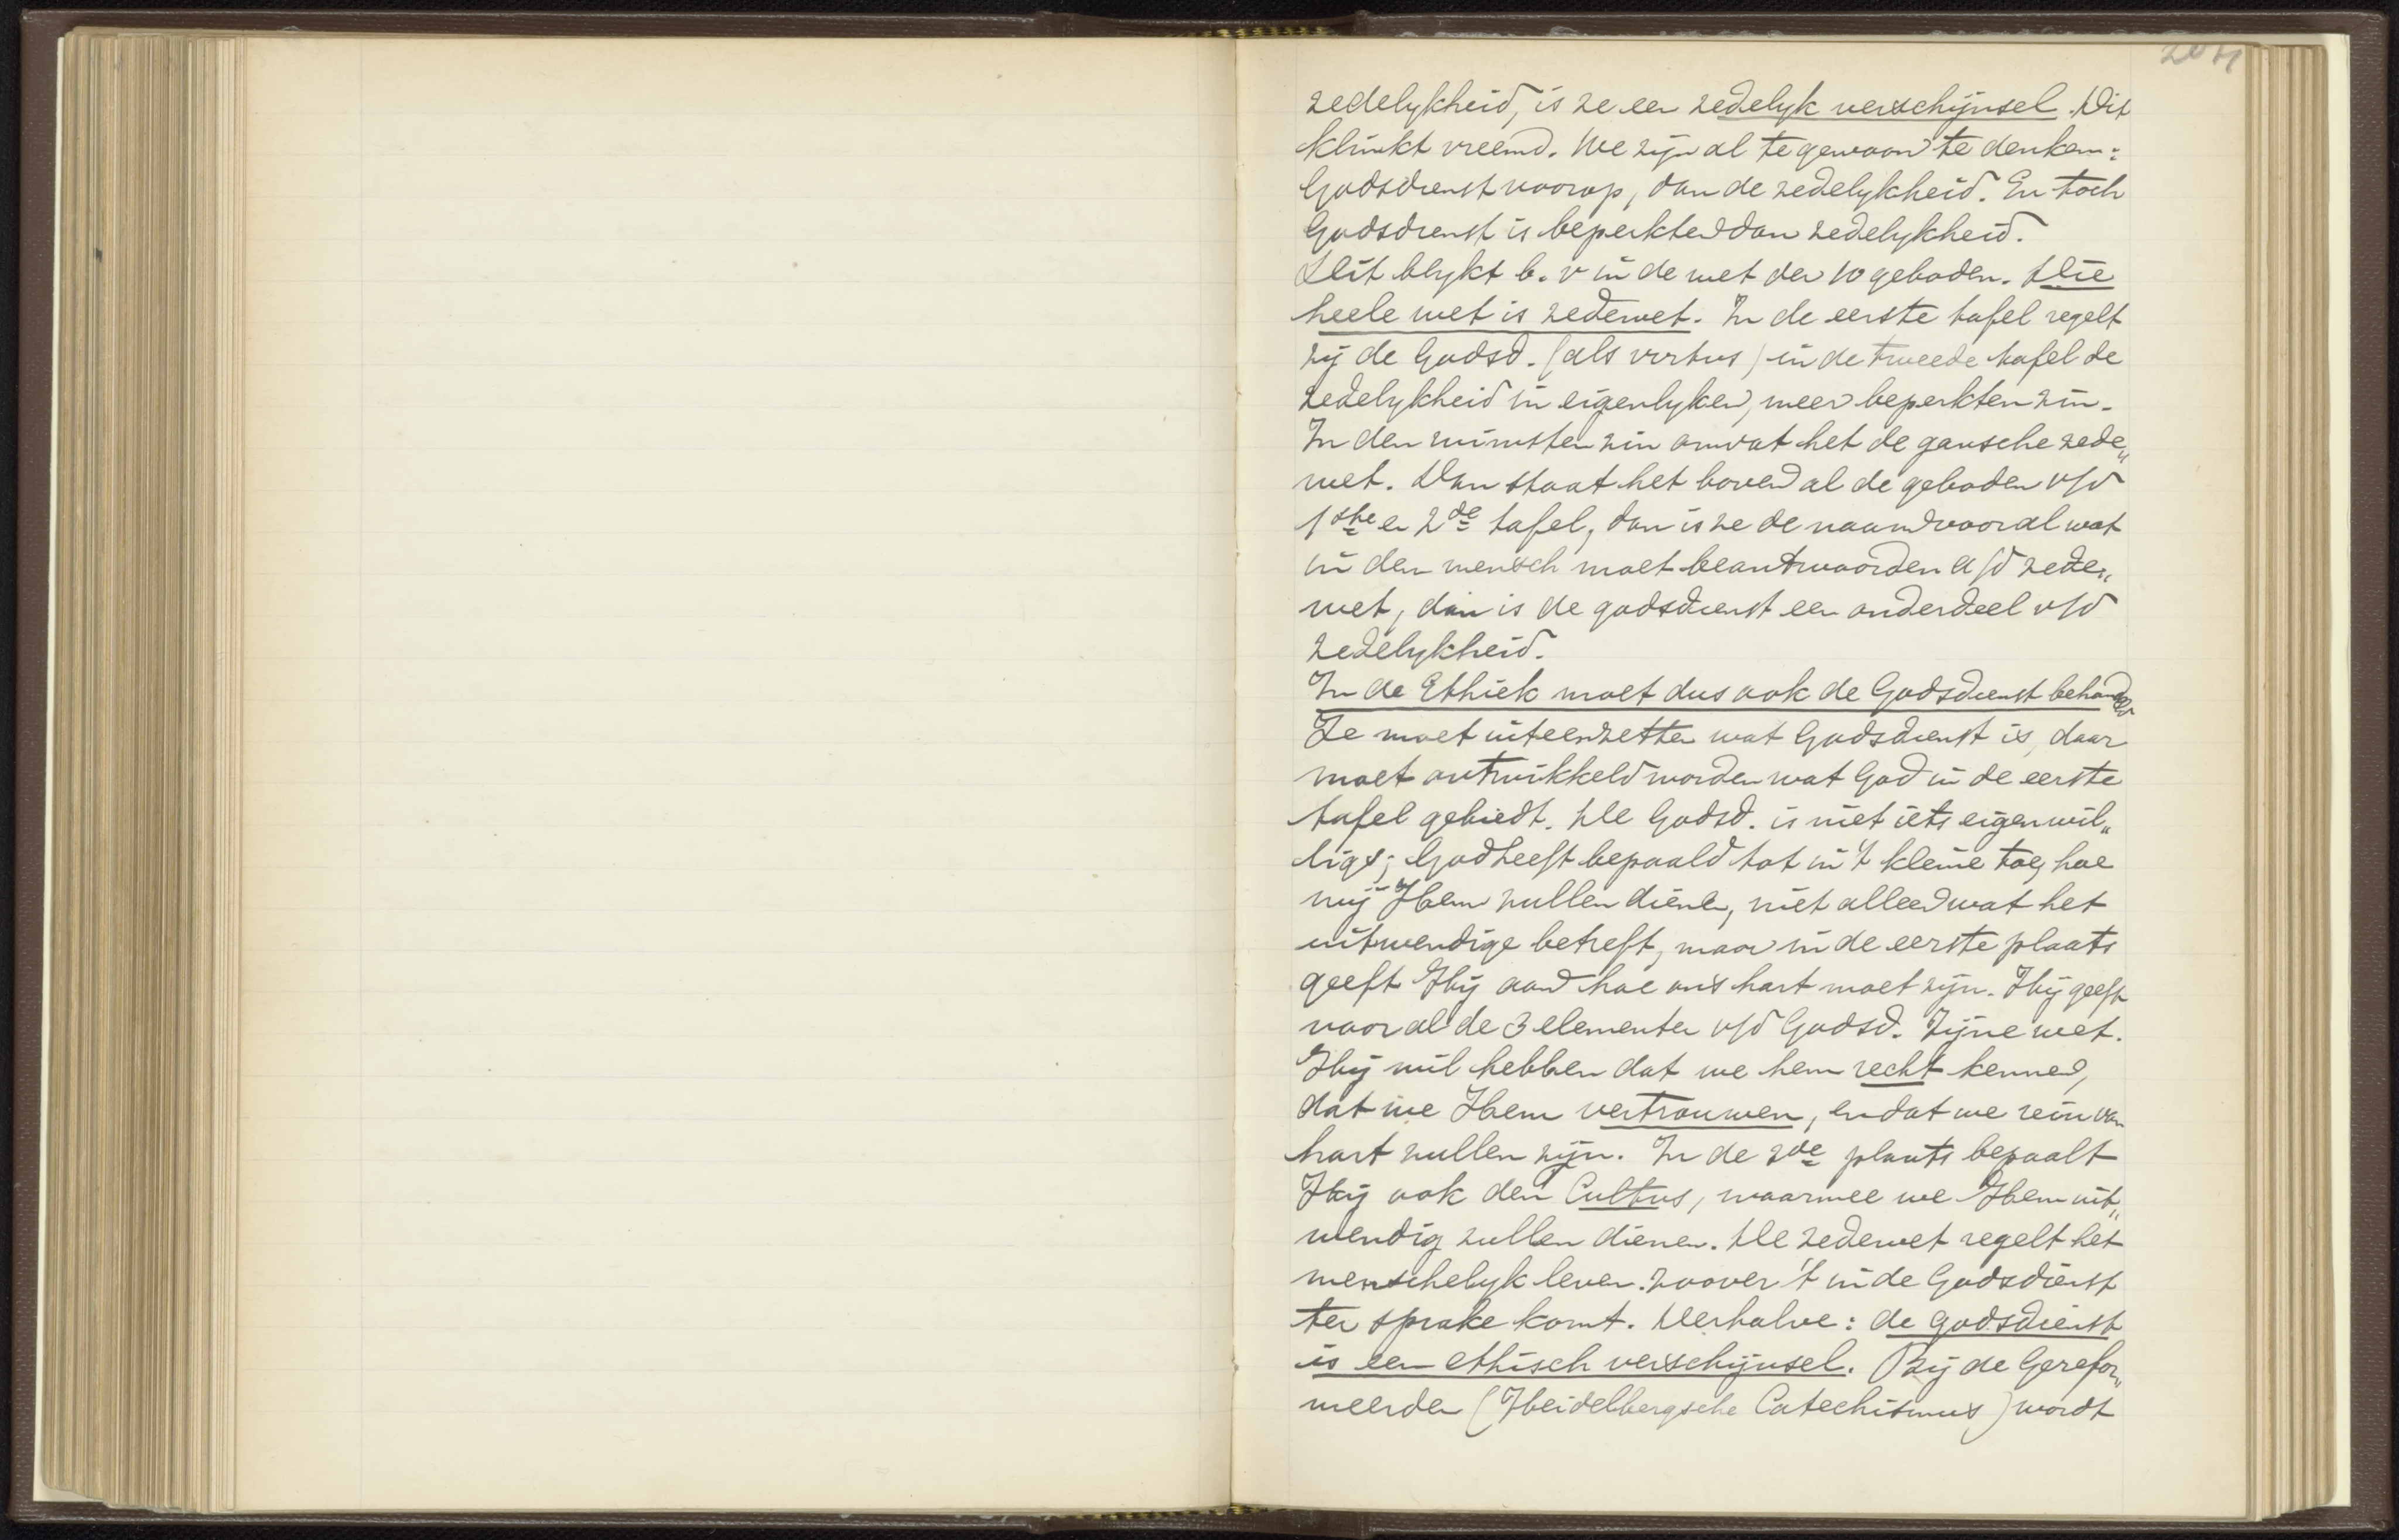 204
zedelykheid, is ze een zedelyk verschijnsel. Dit
klinkt vreemd. We zijn al te gewoon te denken:
Godsdienst voorop, dan de zedelykheid. En toch
Godsdienst is beperkter dan zedelykheid.
Dit blykt b.v in de wet der 10 geboden. Die
heele wet is zedewet. In de eerste tafel regelt
zij de Godsd. (als virtus) in de tweede tafel de
zedelykheid in eigenlyken, meer beperkten zin.
In den ruimsten zin omvat het de gansche zede„
wet. Dan staat het boven al de geboden v/d
1ste en 2de tafel, dan is ze de naam voor al wat
in den mensch moet beantwoorden a/d zede„
wet, dan is de godsdienst een onderdeel v/d
zedelykheid.
In de Ethiek moet dus ook de Godsdienst behandeld
Ze moet uiteenzetten wat Godsdienst is, daar
moet ontwikkeld worden wat God in de eerste
tafel gebiedt. De Godsd. is niet iets eigenwil„
ligs; God heeft bepaald tot in 't kleine toe, hoe
wij Hem zullen dienen, niet alleen wat het
uitwendige betreft, maar in de eerste plaats
geeft Hij aan hoe ons hart moet zijn. Hij geeft
voor al de 3 elementen v/d Godsd. Zijne wet.
Hij wil hebben dat we hem recht kennen,
dat we Hem vertrouwen, en dat we rein van
hart zullen zijn. In de 2de plaats bepaalt
Hij ook den Cultus, waarmee we Hem uit„
wendig zullen dienen. De zedewet regelt het
menschelyk leven. zoover 't in de Godsdienst
ter sprake komt. Derhalve: de godsdienst
is een ethisch verschijnsel. Bij de Gerefor„
meerden (Heidelbergsche Catechismus) wordt